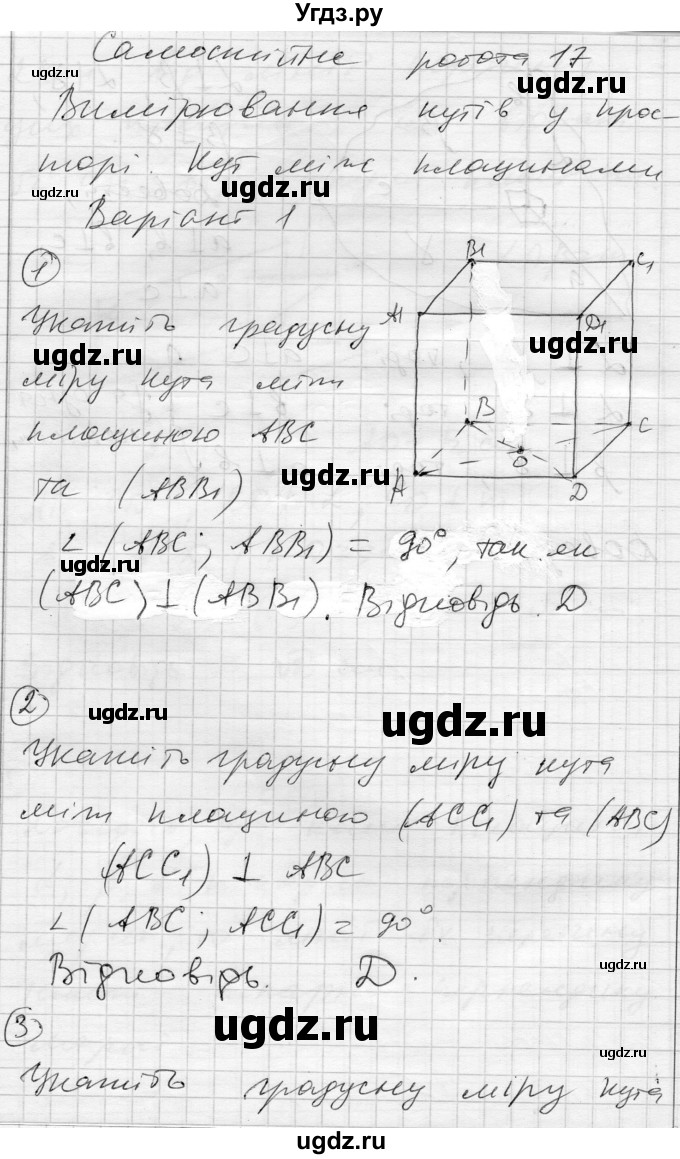 Угдз.ру
Самостійна робота 17
ugdz.ru ugdz.ru
Вимірювання кутів у прос-
торі. Кут між площинами
ugdz.ru ugdz.ru
Варіант 1
1
B1 C1
A1 D1
Укажіть градусну
ugdz.ru ugdz.ru
міру кута між
площиною ABC
B C
O
A D
та (ABB1)
ugdz.ru
∠(ABC; ABB1) = 90°, так як
ugdz.ru ugdz.ru
(ABC) ⊥ (ABB1). Відповідь. D
2
ugdz.ru ugdz.ru
Укажіть градусну міру кута
між площиною (ACC1) та (ABC)
(ACC1) ⊥ ABC
∠(ABC; ACC1) = 90°.
Відповідь. D.
ugdz.ru
3
ugdz.ru
ugdz.ru
Укажіть градусну міру кута
ugdz.ru